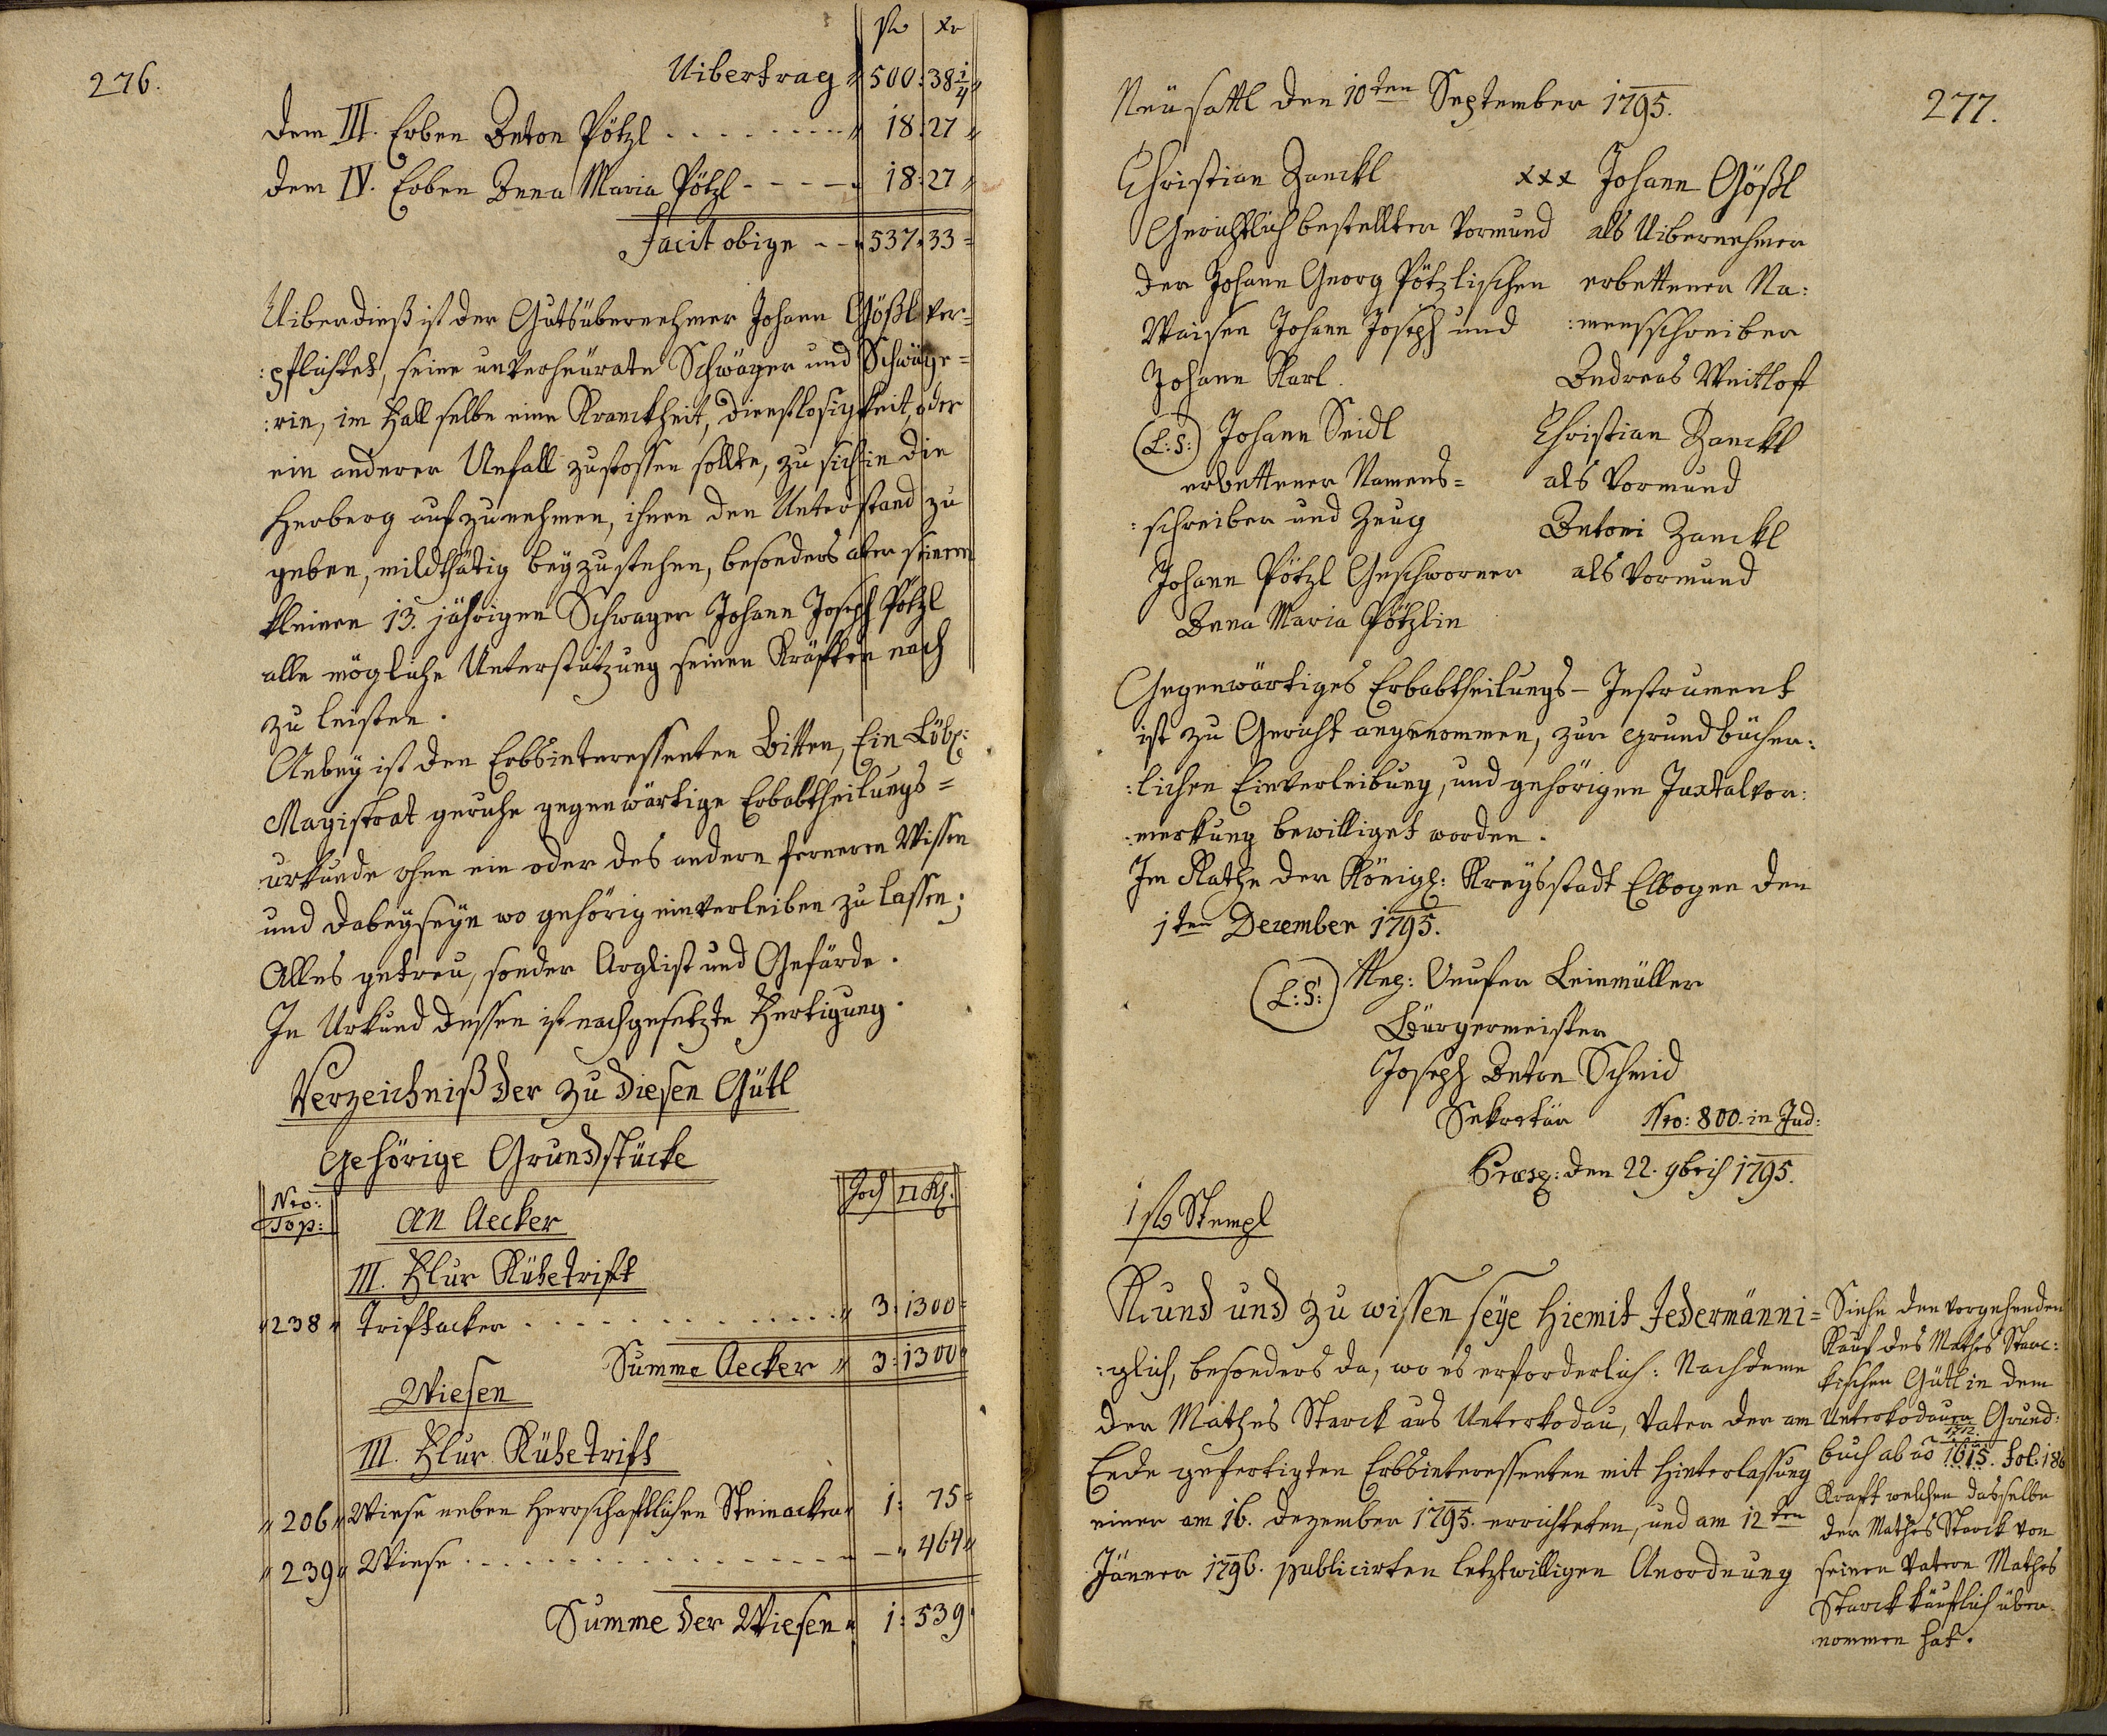 276.
fl xr
Uibertrag " 500: 38 1/4 "
dem III. Erben Anton Pötzl - - - - - - - - " 18: 27 "
dem IV. Erben Anna Maria Pötzl - - - - " 18: 27 "
Facit obige - - " 537: 33 =
Uiberdieß ist der Gutsübernehmer Johann Gößl ver=
:pflichtet, seine unverheurate Schwäger und Schwäge=
:rin, im Fall selbe eine Kranckheit, Dienstlosigkeit, oder
ein anderer Unfall zustossen sollte, zu sich in die
Herberg aufzunehmen, ihnen den Unterstand zu
geben, mildthätig beyzustehen, besonders aber seinem
kleinen 13. jährigen Schwager Johann Joseph Pötzl
alle mögliche Unterstützung seinen Kräften nach
zu leisten.
Anbey ist den Erbsinteressenten Bitten, Ein Löbl:
Magistrat geruhe gegenwärtige Erbabtheilungs=
urkunde ohne ein oder des andern ferneren Wissen
und Dabeyseyn wo gehörig einverleiben zu lassen;
Alles getreu, sonder Arglist und Gefärde.
In Urkund dessen ist nachgesetzte Fertigung.
Verzeichniß der zu diesen Gütl
gehörige Grundstücke
Nro: Top: Joch □ Kl.
An Aecker
III. Flur Kühetrift
" 238 " Triftacker - - - - - - - - - - - - - " 3: 1300 =
Summe Aecker " 3: 1300 "
Wiesen
III. Flur Kühetrift
" 206 " Wiese neben herrschaftlichen Steinacker " 1: 75 =
" 239 " Wiese - - - - - - - - - - - - - - - - " - " 464 "
Summe der Wiesen " 1: 539.
277.
Neüsattl den 10ten September 1795.
Christian Zanckl
Gerichtlich bestellter Vormund
der Johann Georg Pötzlischen
Waisen Johann Joseph und
Johann Karl.
(L:S:) Johann Seidl
erbettener Namens=
:schreiber und Zeug
Johann Pötzl Geschworner
Anna Maria Pötzlin
xxx Johann Gößl
als Uibernehmer
erbettener Na:
:mensschreiber
Andreas Weitloff
Christian Zanckl
als Vormund
Antoni Zanckl
als Vormund
Gegenwärtiges Erbabtheilungs- Instrument
ist zu Gericht angenommen, zur grundbücher:
:lichen Einverleibung, und gehörigen Juxtalvor:
:merkung bewilliget worden.
Im Rathe der Königl: Kreysstadt Elbogen den
1ten Dezember 1795.
(L:S:) Leinmüller
Bürgermeister
Joseph Anton Schmid
Sekretär Nro: 800. in Jud:
Præs: den 22. 9brich 1795.
1 fl Stempl
Kund und zu wissen seye hiemit Jedermänni=
:glich, besonders da, wo es erforderlich: Nachdeme
der Mathes Starck aus Unterkodau, Vater der am
Ende gefertigten Erbsinteressenten mit Hinterlassung
einer am 16. Dezember 1795. errichteten, und am 12ten
Jänner 1796. publicirten letztwilligen Anordnung
Siehe den vorgehenden
Kauf des Mathes Starc:
kischen Gütl in dem
Unterkodauer Grund:
1712.
buch ab aõ 1615. Fol: 186
Kraft welchen dasselbe
der Mathes Starck von
seinen Vatern Mathes
Starck käuflich über
nommen hat.